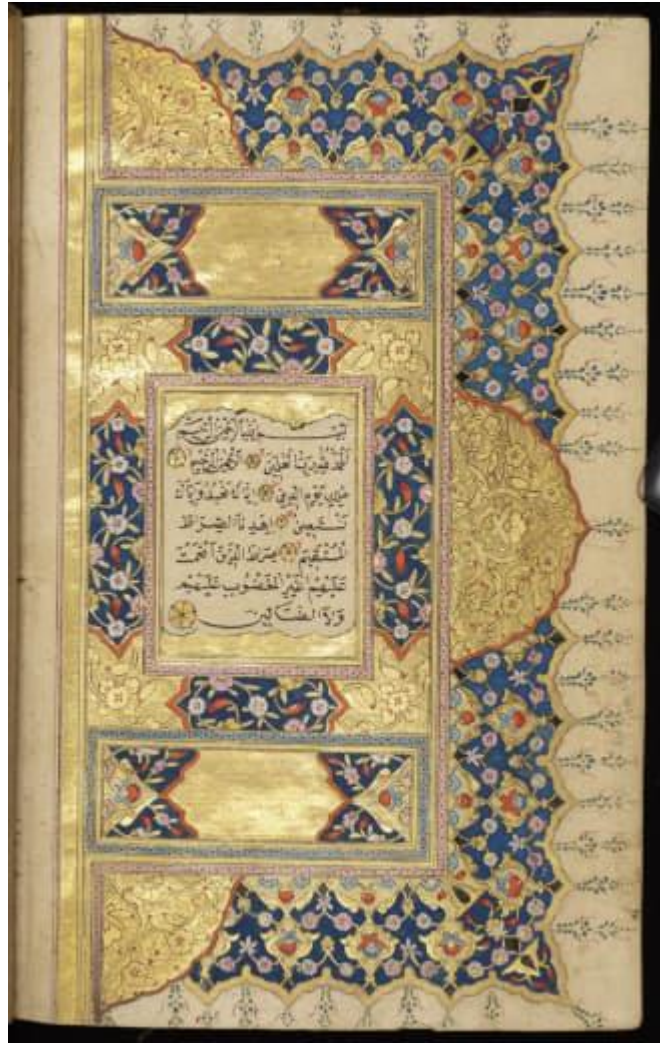 بِسْمِ اللَّهِ الرَّحْمَٰنِ الرَّحِيمِ
اَلْحَمْدُ لِلَّهِ رَبِّ الْعَالَمِينَ الرَّحْمَٰنِ الرَّحِيمِ
مَالِكِ يَوْمِ الدِّينِ إِيَّاكَ نَعْبُدُ وَإِيَّاكَ
نَسْتَعِينُ اِهْدِنَا الصِّرَاطَ
الْمُسْتَقِيمَ صِرَاطَ الَّذِينَ أَنْعَمْتَ
عَلَيْهِمْ غَيْرِ الْمَغْضُوبِ عَلَيْهِمْ
وَلَا الضَّالِّينَ